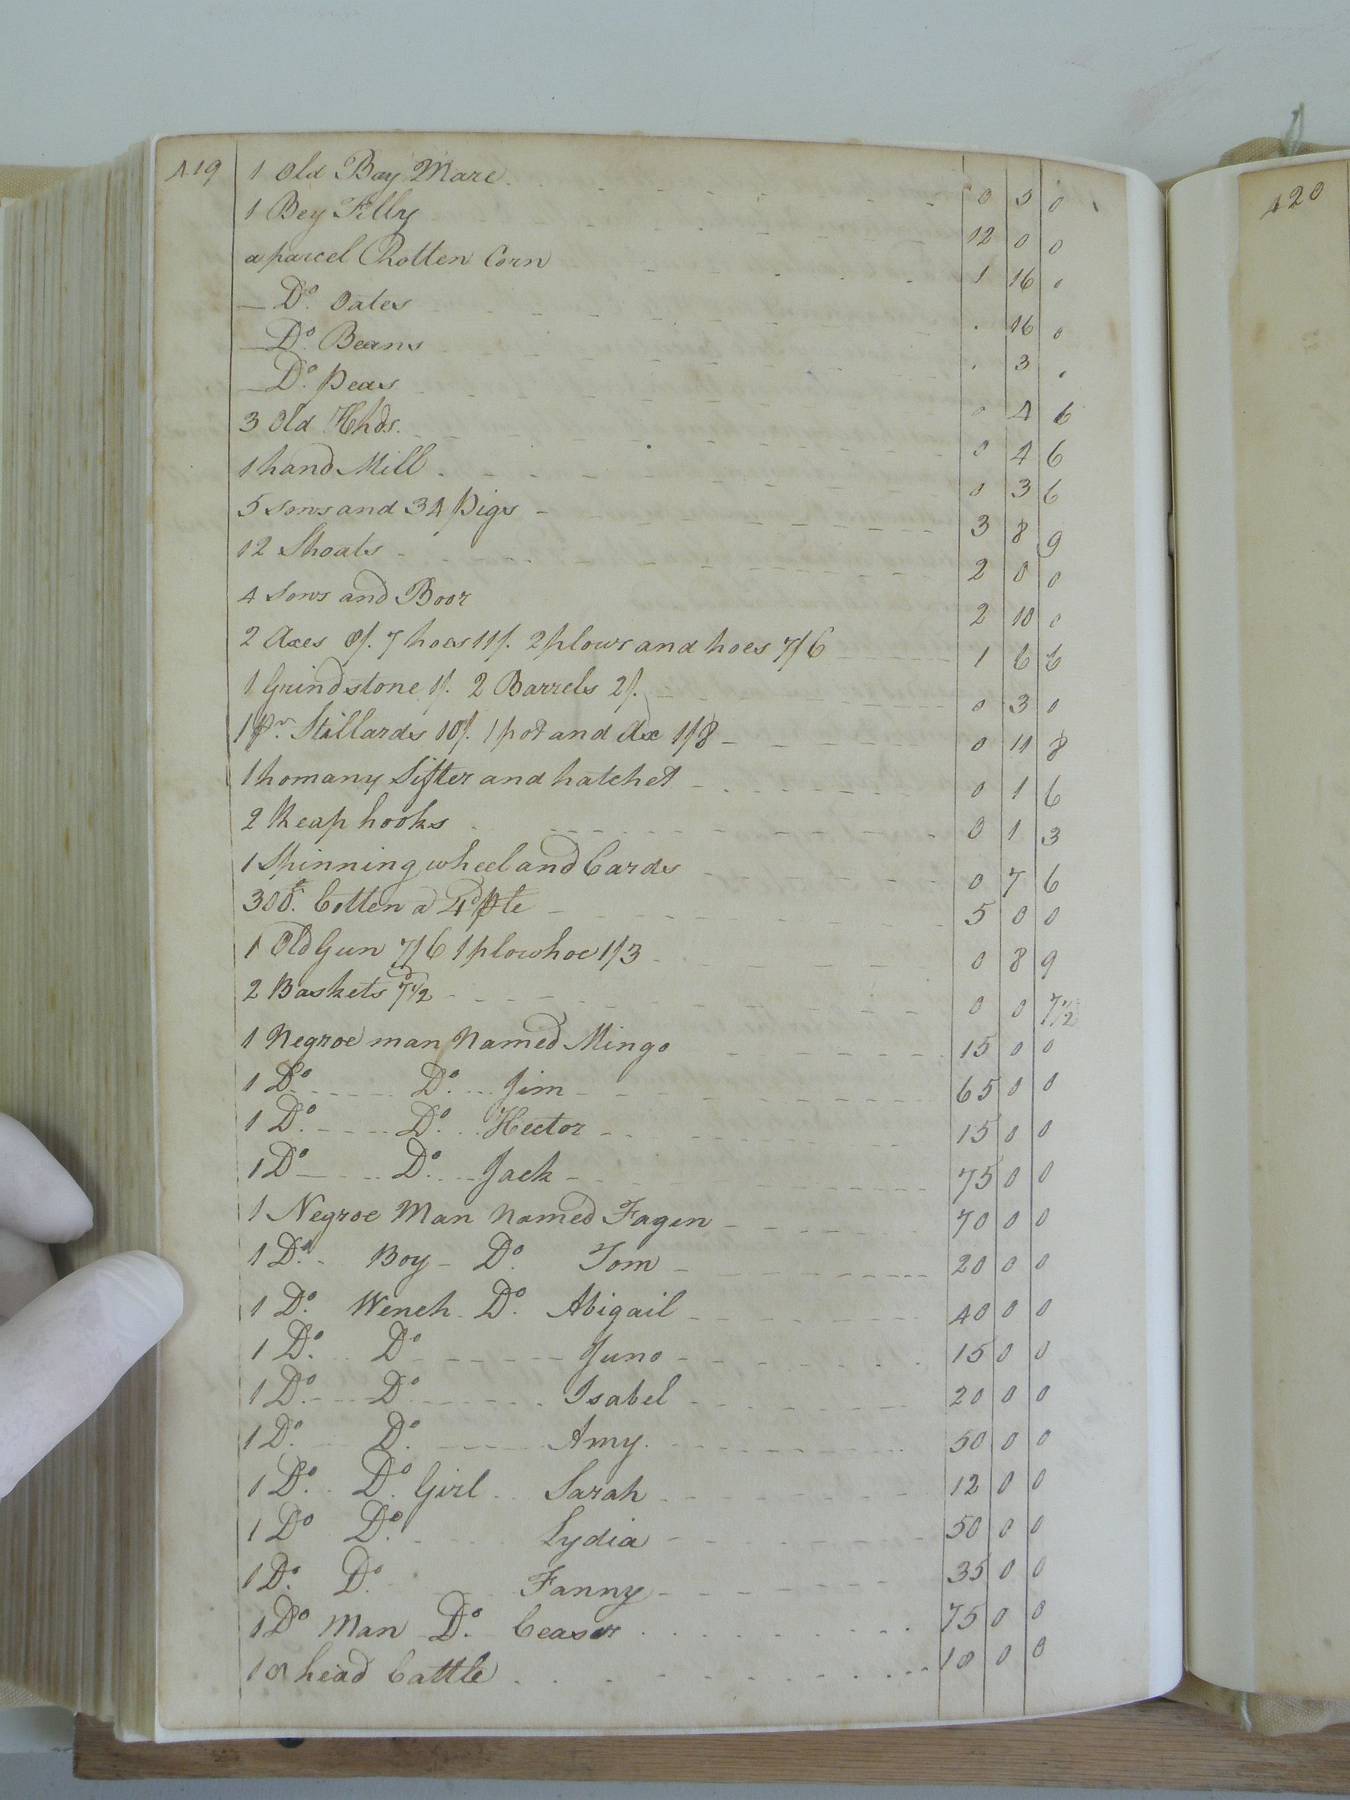 419 1 Old Bay Mare 0 5 0
1 Bey Filly 12 0 0
a parcel Rotten Corn 1 16 0
— Do. Oates . 16 0
— Do. Beans . 3 .
— Do. Peas 0 4 6
3 Old Hhds. 0 4 6
1 hand Mill 0 3 6
5 sows and 34 Pigs 3 8 9
12 Shoats 2 0 0
4 sows and Boor 2 10 0
2 Axes 8/. 7 hoes 11/. 2 plows and hoes 7/6 1 6 6
1 Grindstone 1/. 2 Barrels 2/. 0 3 0
1 pr. Stillards 10/. 1 pot and Ax 1/8 0 11 8
1 homany Sifter and hatchet 0 1 6
2 Reap hooks 0 1 3
1 Spinning wheel and Cards 0 7 6
300. Cotten a 4d 5 0 0
1 Old Gun 7/6 1 plow hoe 1/3 0 8 9
2 Baskets 7½d 0 0 7½
1 Negroe man Named Mingo 15 0 0
1 Do. Do. Jim 65 0 0
1 Do. Do. Hector 15 0 0
1 Do Do. Jack 75 0 0
1 Negroe Man Named Fagen 70 0 0
1 Do. Boy Do. Tom 20 0 0
1 Do. Wench Do. Abigail 40 0 0
1 Do. Do Juno 15 0 0
1 Do. Do Isabel 20 0 0
1 Do. Do. Amy 50 0 0
1 Do. Do. Girl Sarah 12 0 0
1 Do Do. Lydia 50 0 0
1 Do. Do. Fanny 35 0 0
1 Do Man Do. Ceasor 75 0 0
10 head Cattle 10 0 0
420